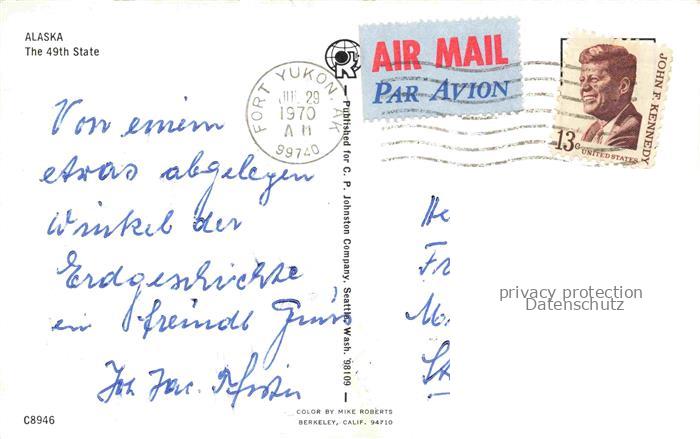 ALASKA
The 49th State
AIR MAIL
PAR AVION
FORT YUKON, AK
29
1970
AM
99740
JOHN F. KENNEDY
13c
UNITED STATES
Von einem
etwas abgelegen
Winkel der
Erdgeschichte
ein freindl
Published for C. P. Johnston Company, Seattle, Wash. 98109
He
Fr
privacy protection
Datenschutz
COLOR BY MIKE ROBERTS
BERKELEY, CALIF. 94710
C8946